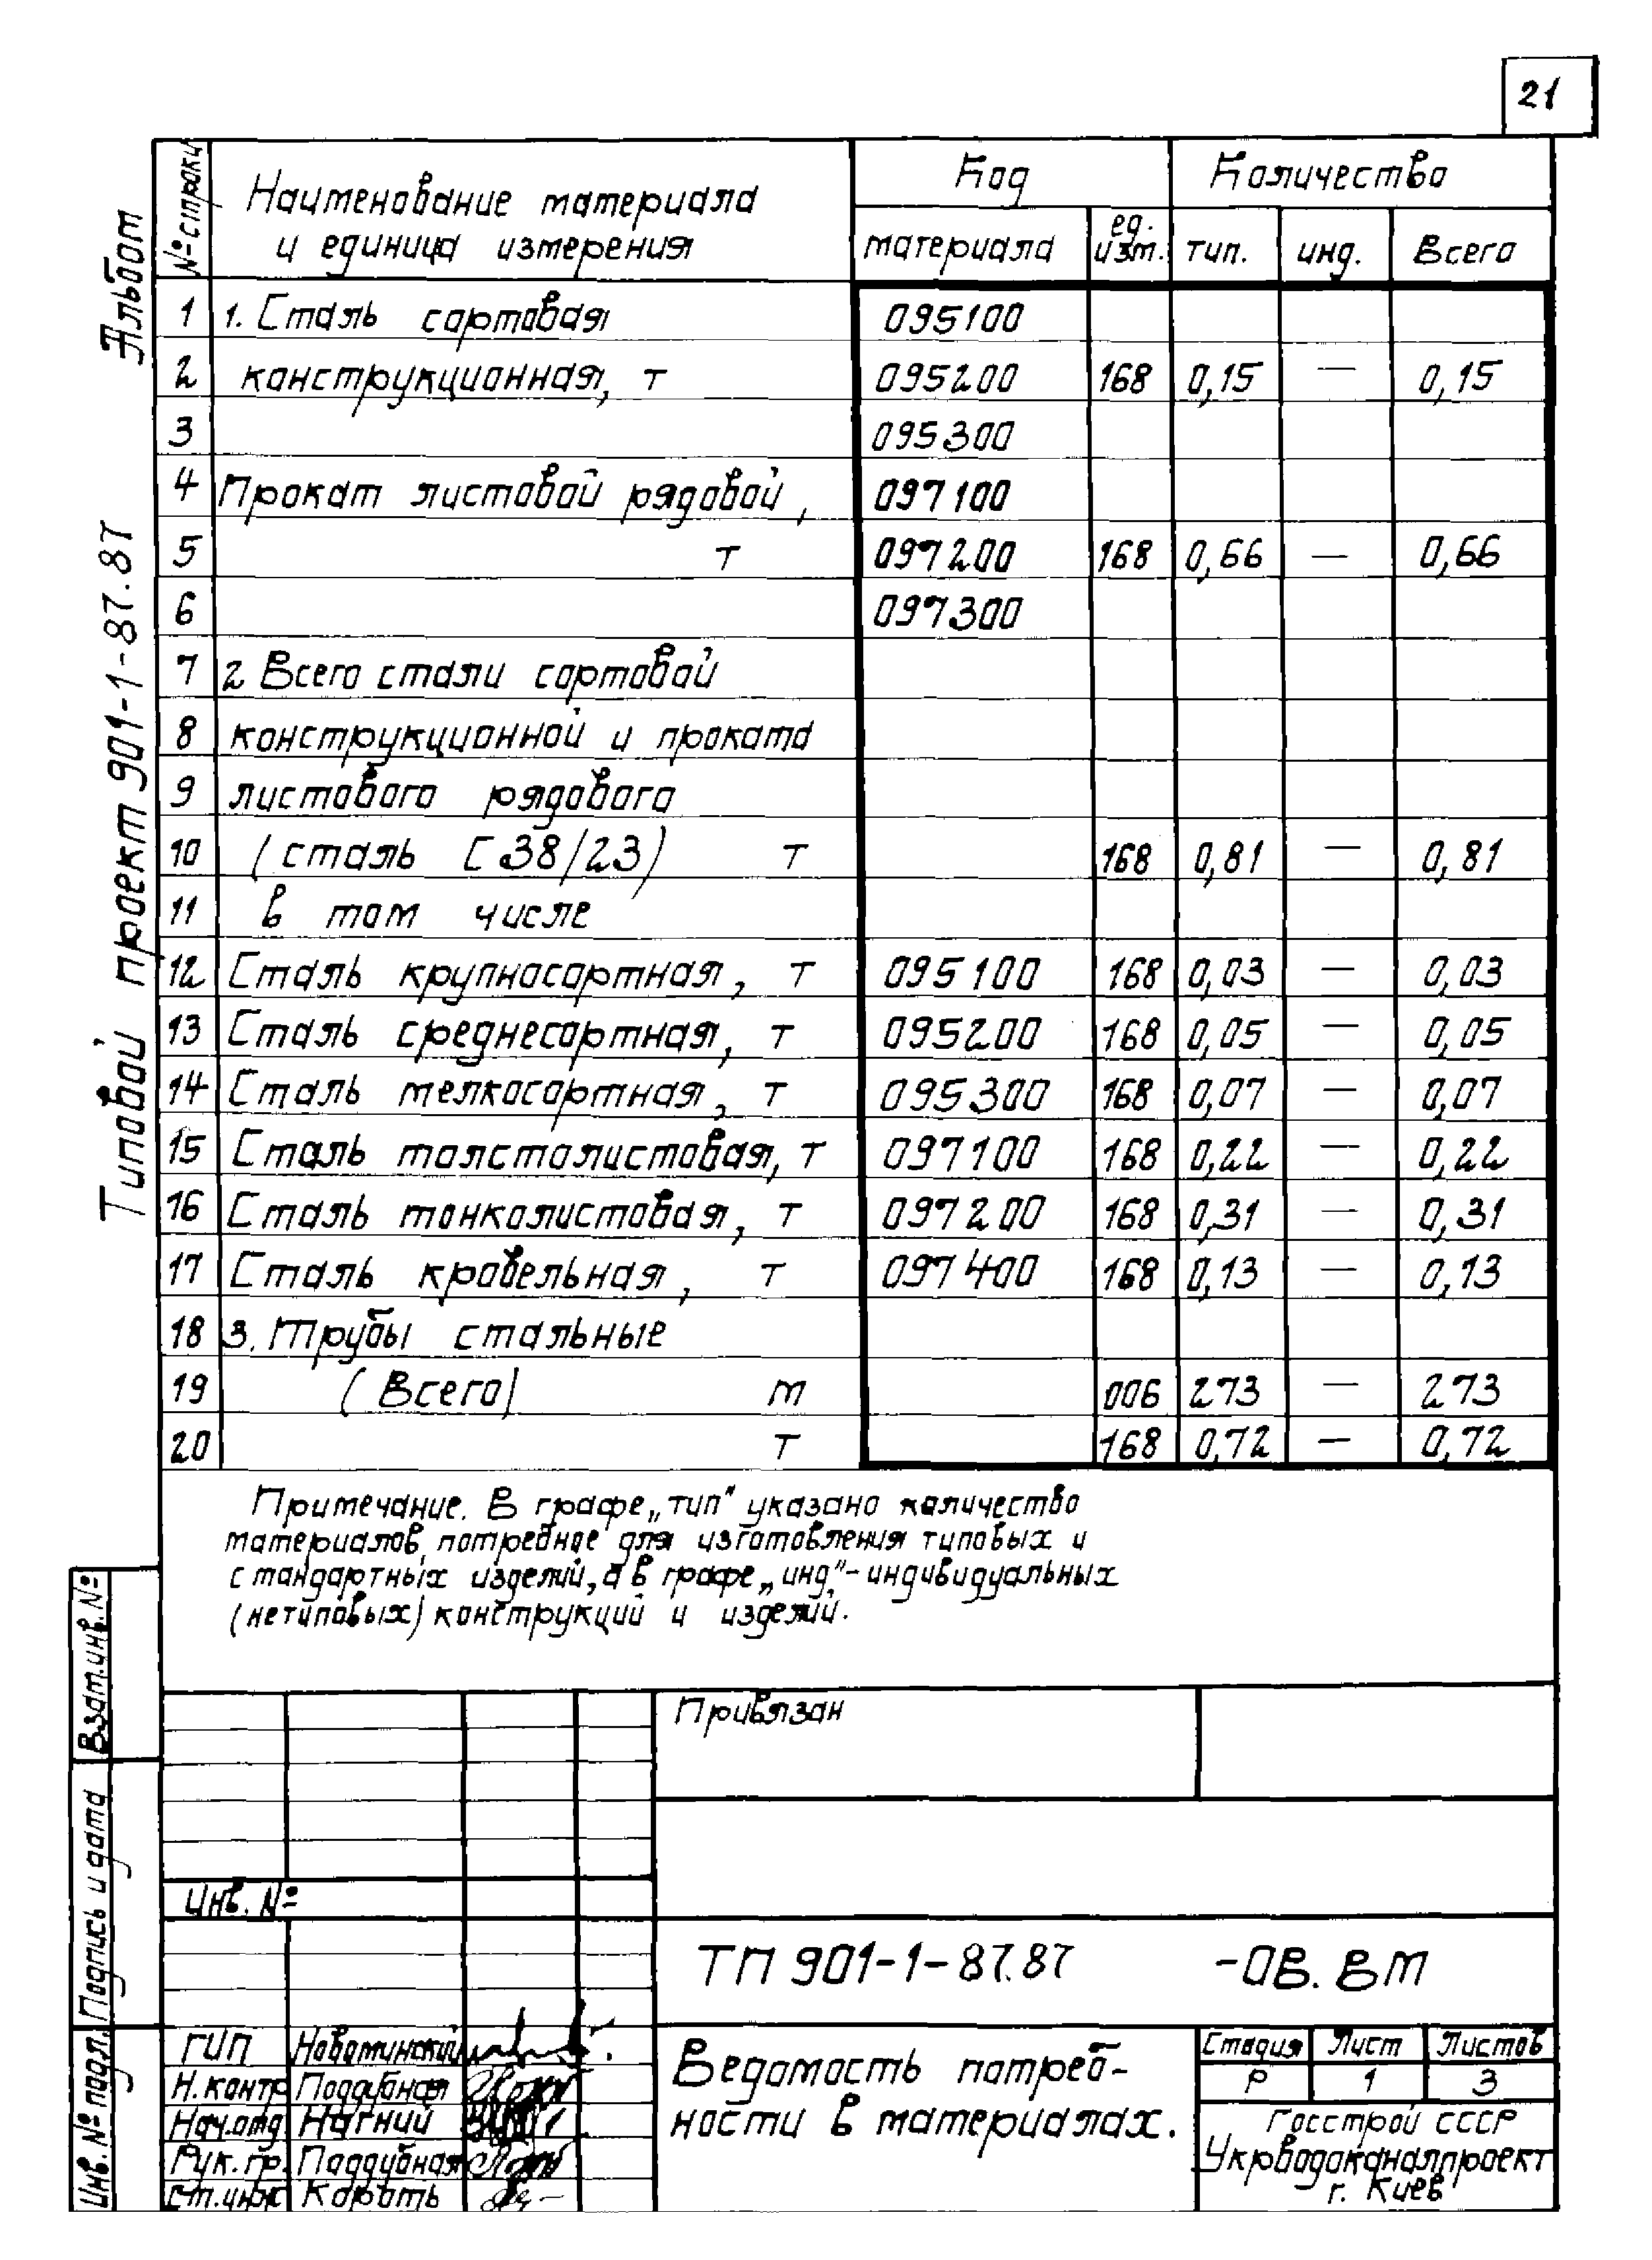 21
Альбом
Типовой проект 901-1-87.87
№ строки Наименование материала и единица измерения Код Количество
материала ед. изм. тип. инд. Всего
1 1. Сталь сортовая 095100
2 конструкционная, т 095200 168 0,15 — 0,15
3 095300
4 Прокат листовой рядовой, 097100
5 т 097200 168 0,66 — 0,66
6 097300
7 2 Всего стали сортовой
8 конструкционной и проката
9 листового рядового
10 (сталь С38/23) т 168 0,81 — 0,81
11 в том числе
12 Сталь крупносортная, т 095100 168 0,03 — 0,03
13 Сталь среднесортная, т 095200 168 0,05 — 0,05
14 Сталь мелкосортная, т 095300 168 0,07 — 0,07
15 Сталь толстолистовая, т 097100 168 0,22 — 0,22
16 Сталь тонколистовая, т 097200 168 0,31 — 0,31
17 Сталь кровельная, т 097400 168 0,13 — 0,13
18 3. Трубы стальные
19 (Всего) м 006 273 — 273
20 т 168 0,72 — 0,72
Примечание. В графе „тип" указано количество
материалов, потребное для изготовления типовых и
стандартных изделий, а в графе „инд"- индивидуальных
(нетиповых) конструкций и изделий.
Взам. инв. №
Подпись и дата
Инв. № подл.
Привязан
Инв. №
ТП 901-1-87.87 -ОВ. ВМ
ГИП Новоминский
Н.контр Поддубная
Нач.отд Нагний
Рук. гр. Поддубная
Ст.инж Короть
Ведомость потреб-
ности в материалах.
Стадия Лист Листов
Р 1 3
Госстрой СССР
Укрводоканалпроект
г. Киев